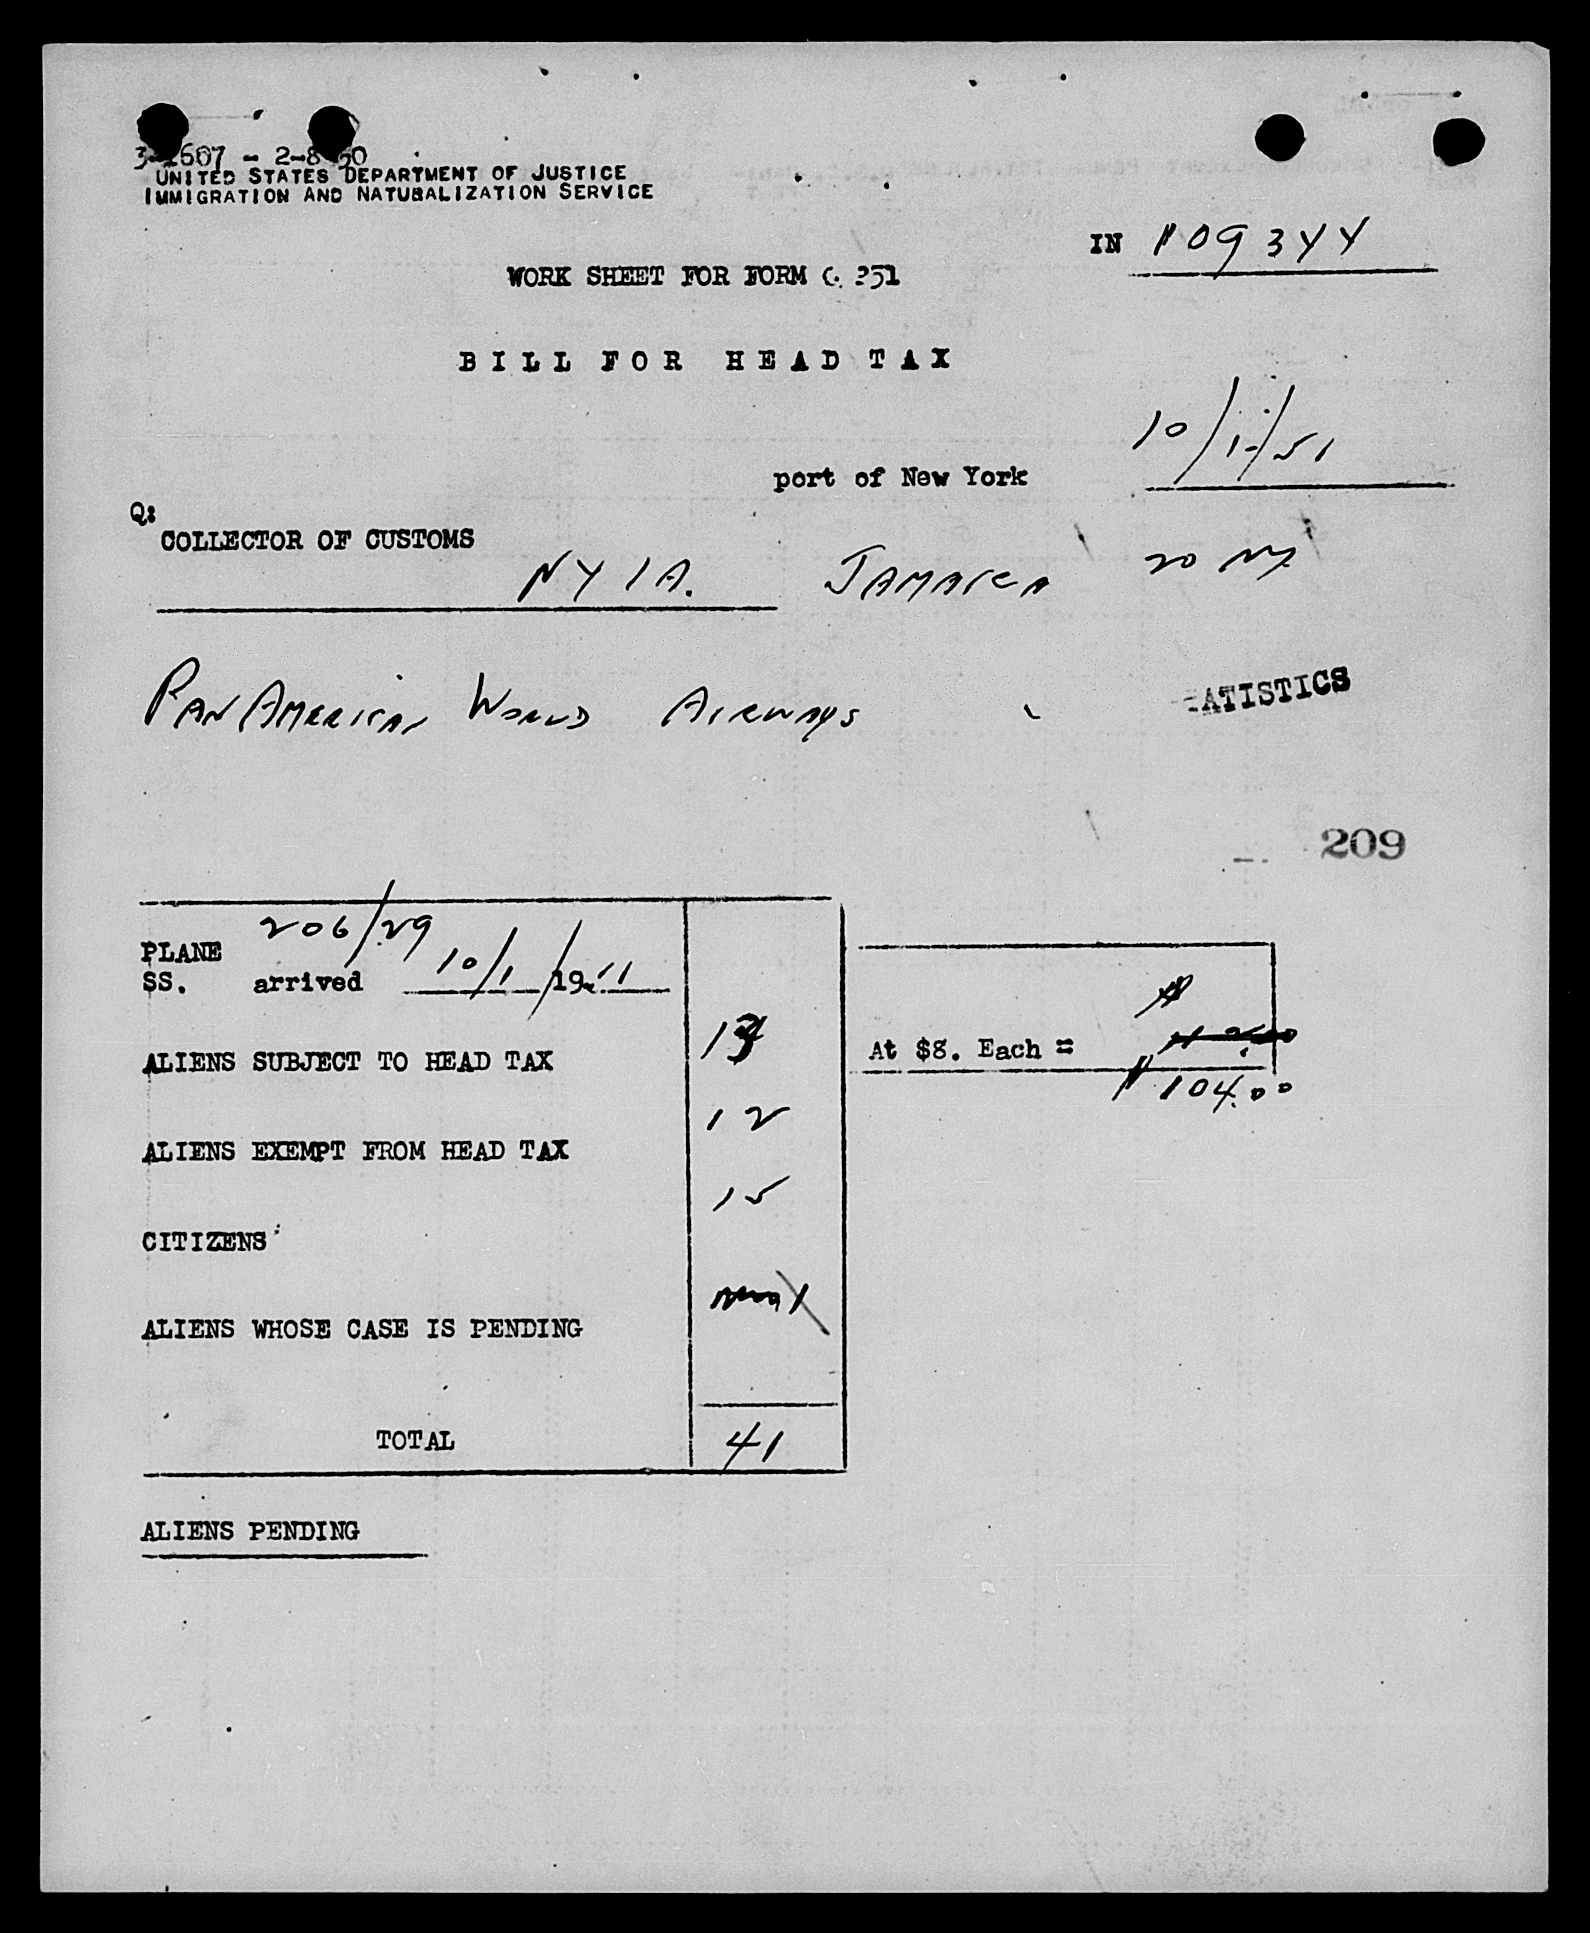 UNITED STATES DEPARTMENT OF JUSTICE
IMMIGRATION AND NATURALIZATION SERVICE
IN 109344
WORK SHEET FOR FORM G. 251
BILL FOR HEAD TAX
port of New York 10/1/51
COLLECTOR OF CUSTOMS
NYIA. JAMAICA 20 NY
PAN AMERICAN WORLD AIRWAYS
209
206/29
PLANE
SS. arrived 10/1/1951
ALIENS SUBJECT TO HEAD TAX 13
At $8. Each =
$104.00
ALIENS EXEMPT FROM HEAD TAX 12
CITIZENS 15
ALIENS WHOSE CASE IS PENDING 1
TOTAL 41
ALIENS PENDING